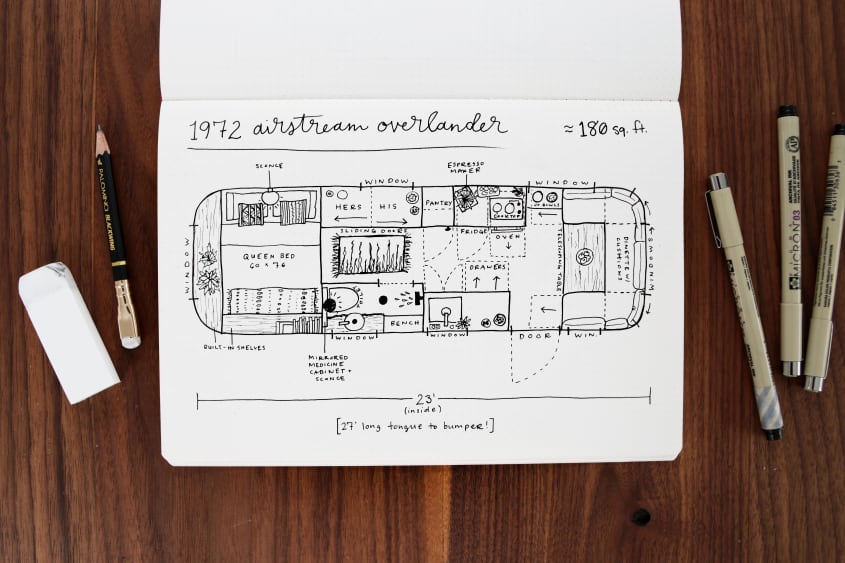 1972 airstream overlander
≈ 180 sq. ft.
SCONCE
ESPRESSO
MAKER
WINDOW
WINDOW
HERS
HIS
PANTRY
COOKTOP
SLIDING DOORS
FRIDGE
OVEN
QUEEN BED
60 x 76
DRAWERS
TELESCOPING TABLE
DINETTE W/
CUSHIONS
WINDOW
WINDOWS
BENCH
WINDOW
WINDOW
DOOR
WIN.
BUILT-IN SHELVES
MIRRORED
MEDICINE
CABINET +
SCONCE
23'
(inside)
[27' long tongue to bumper!]
PALOMINO BLACKWING
MICRON 03
ARCHIVAL INK